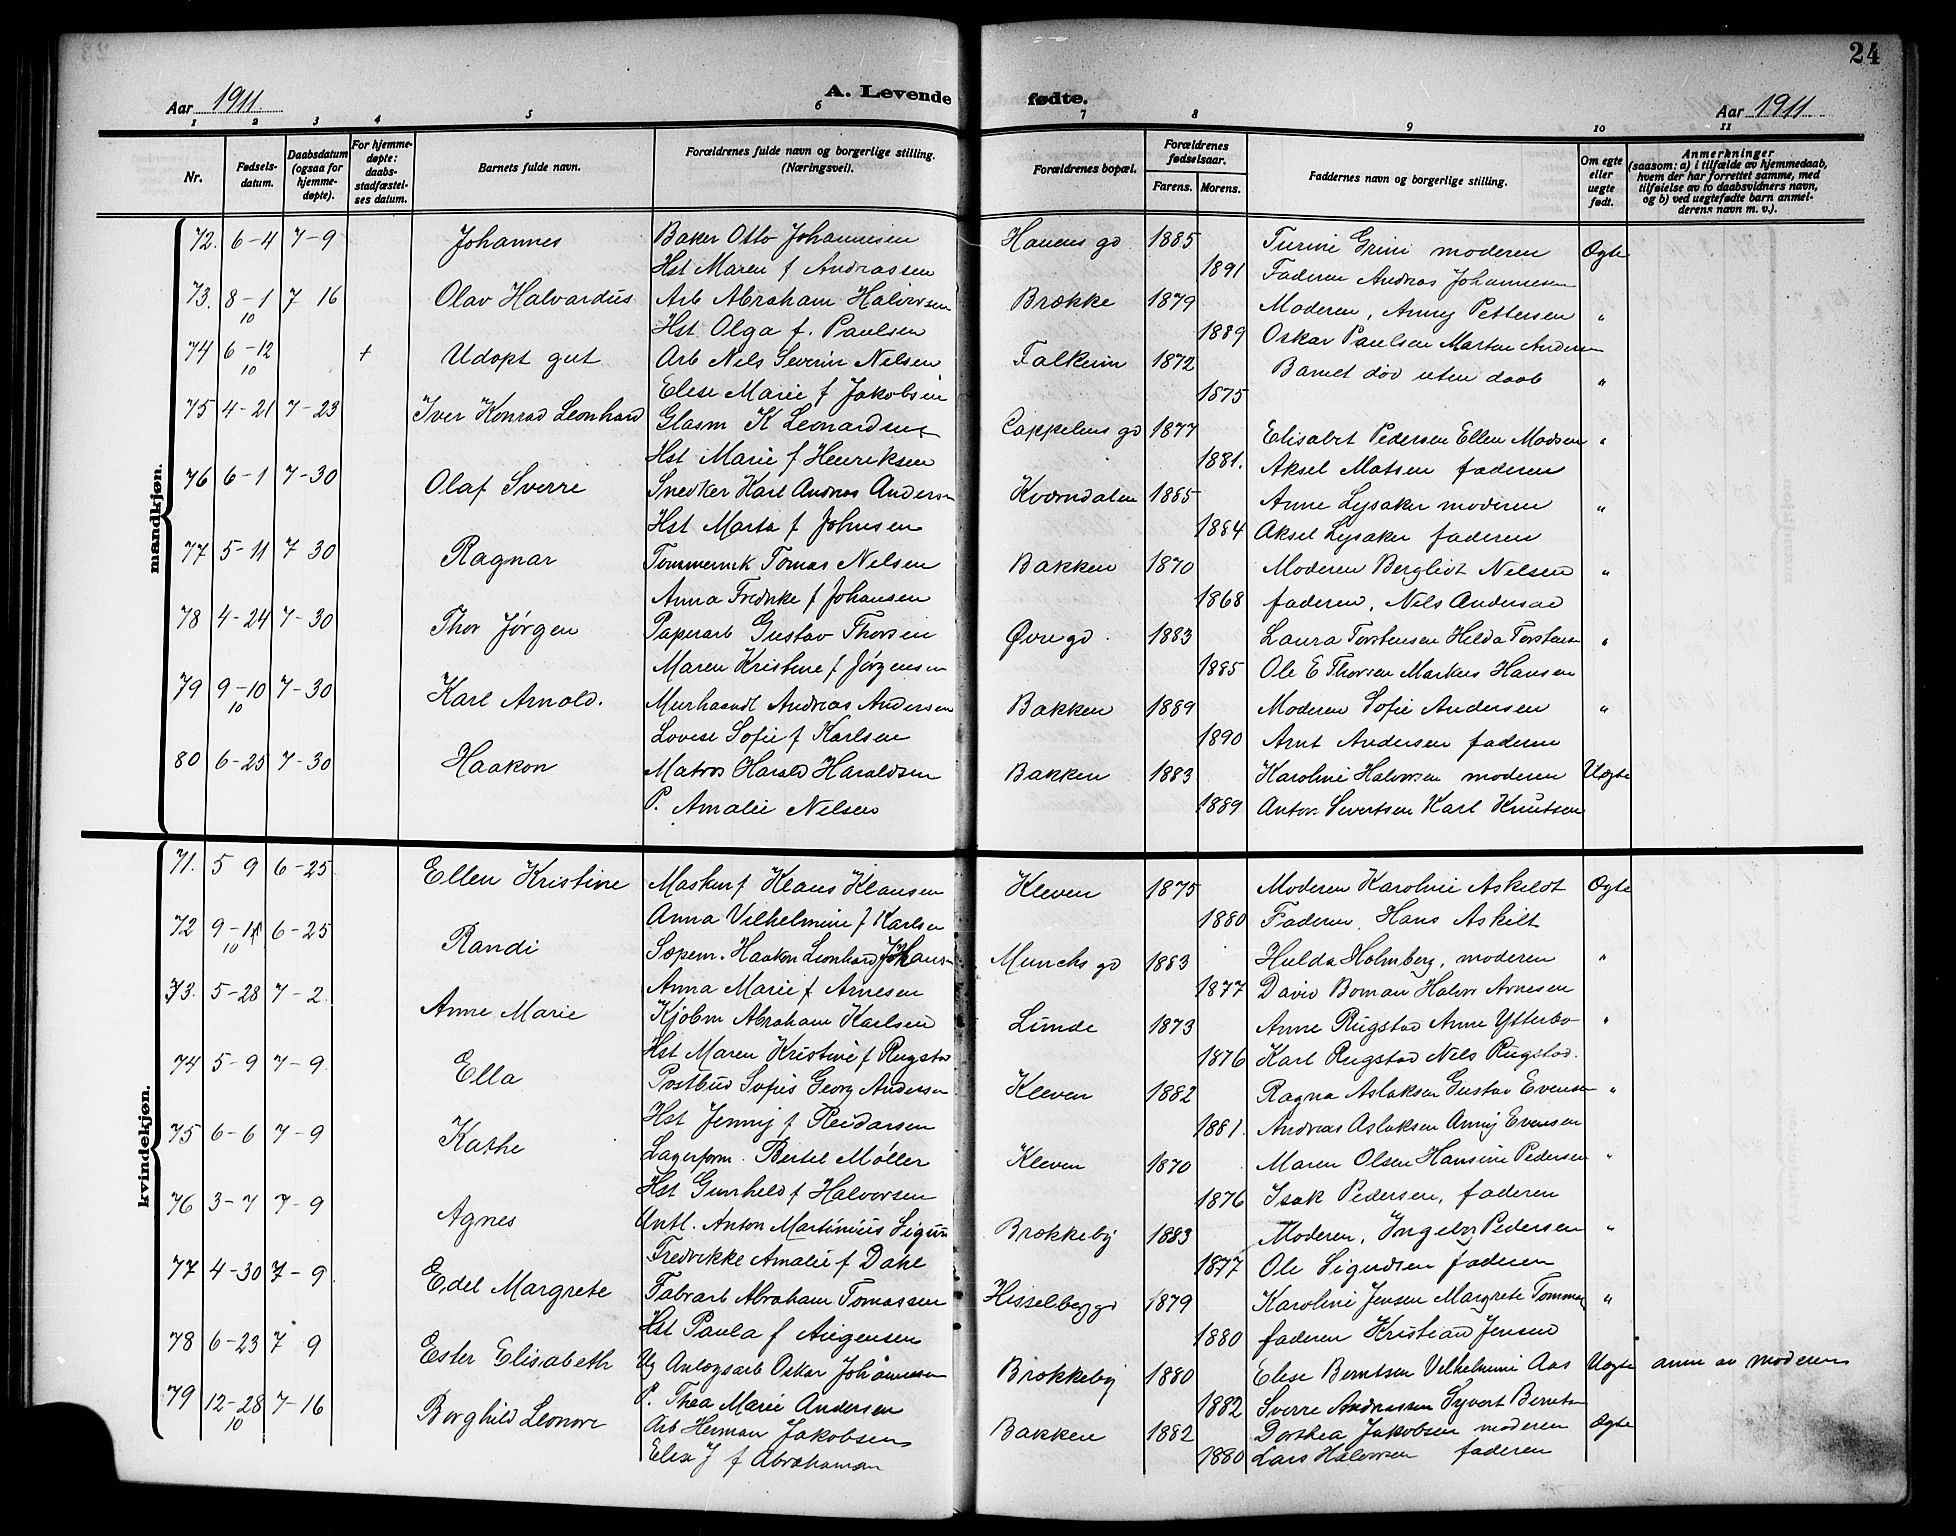 24
Aar 1911.
A. Levende fødte.
Aar 1911
1 2 3 4 5 6 7 8 9 10 11
Nr.
Fødsels-datum.
Daabsdatum (ogsaa for hjemme-døpte).
For hjemme-døpte: daabs-stadfæstel-ses datum.
Barnets fulde navn.
Forældrenes fulde navn og borgerlige stilling. (Næringsvei).
Forældrenes bopæl.
Forældrenes fødselsaar.
Farens. Morens.
Faddernes navn og borgerlige stilling.
Om egte eller uegte født.
Anmerkninger (saasom: a) i tilfælde av hjemmedaab, hvem der har forrettet samme, med tilføielse av to daabsvidners navn, og b) ved uegtefødte barn anmel-derens navn m. v.).
mandkjøn.
72. 6-4 7-9 Johannes Baker Otto Johannesen Hauens gd 1885 Turine Grini moderen Ægte
Hst Maren f Andreassen 1891 Faderen Andreas Johannesen
73. 8-1 10 7 16 Olav Halvardus Arb Abraham Halvorsen Brække 1879 Moderen, Anny Pettersen "
Hst Olga f. Paulsen 1889 Oskar Paulsen Martin Andersen
74 6-12 10 + Udøpt gut Arb Nils Severin Nilsen Falkum 1872 Barnet død uten daab "
Elise Marie f Jakobsen 1875
75 4-21 7-23 Iver Konrad Leonhard Glasm K Leonardsen Cappelens gd 1877 Elisabet Pedersen Ellen Madsen "
Hst Marie f Henriksen 1881. Aksel Matsen faderen
76 6-1 7-30 Olaf Sverre Snedker Karl Andreas Andersen Kværndalen 1885 Anne Lysaker moderen "
Hst Marta f Johnsen 1884 Aksel Lysaker faderen
77 5-11 7 30 Ragnar Tømmermk Tomas Nelsen Bakken 1870 Moderen Bergliot Nelsen "
Anna Fredrike f Johansen 1868 faderen, Nils Andersen
78 4-24 7-30 Thor Jørgen Paperarb Gustav Thorsen Øvregd. 1883 Laura Torstensen Hilda Torstensen "
Maren Kristine f Jørgensen 1885 Ole E Thorsen Markus Hansen
79 9-10 10 7-30 Karl Arnold. Murhaandl Andreas Andersen Bakken 1889 Moderen Sofie Andersen "
Lovise Sofie f Karlsen 1890 Arnt Andersen faderen
80 6-25 7-30 Haakon Matros Harald Haraldsen Bakken 1883 Karoline Halvorsen moderen Uægte
P. Amalie Nelsen 1889 Anton Sivertsen Karl Knutsen
kvindekjøn.
71. 5 9 6-25 Ellen Kristine Maskinf Klaus Klausen Kleven 1875 Moderen Karoline Askildt Ægte
Anna Vilhelmine f Karlsen 1880 Faderen, Hans Askilt
72 9-11 10 6-25 Randi Sopem. Haakon Leonhard Johansen Munchs gd 1883 Hulda Holmberg, moderen "
Anna Marie f Arnesen 1877 David Boman Halvor Arnesen
73. 5-28 7-2 Anne Marie Kjøbm Abraham Karlsen Limde 1873 Anne Rugstad Anne Ytterbø "
Hst Maren Kristine f Rugstad 1876 Karl Rugstad Nils Rugstad.
74 5-9 7-9 Ella Postbud Sofus Georg Andersen Kleven 1882 Ragna Aslaksen Gustav Evensen "
Hst Jenny f Reidarsen 1881. Andreas Aslaksen Anny Evensen
75 6-6 7-9 Kathe Lagerform. Bertel Møller Kleven 1870 Maren Olsen Hansine Pedersen "
Hst Gunhild f Halvorsen 1876 Isak Pedersen, faderen
76 3-7 7-9 Agnes Untl. Anton Martinius Brækkeby 1883 Moderen, Ingeborg Pedersen "
Fredrikke Amalie f Dahl 1877 Ole Sigurdsen faderen
77 4-30 7-9 Edel Margrete Fabrarb Abraham Tomassen Hisselberggd 1879 Karoline Jensen Margrete Tommer "
Hst Paula f Jørgensen 1880 faderen Kristian Jensen
78 6-23 7 9 Ester Elisabeth Ug Anlægsarb Oskar Johannesen Brækkeby 1880 Elise Berntsen Vilhelmine Aas Uægte anm av moderen
P. Thea Marie Andersen 1882 Sverre Andreassen Syvert Berntsen
79 12-28 10 7-16 Borghild Leonore Arb Herman Jakobsen Bakken 1882 Dorthea Jakobsen moderen Ægte
Elise J f Abrahamsen 1880 Lars Halvorsen faderen